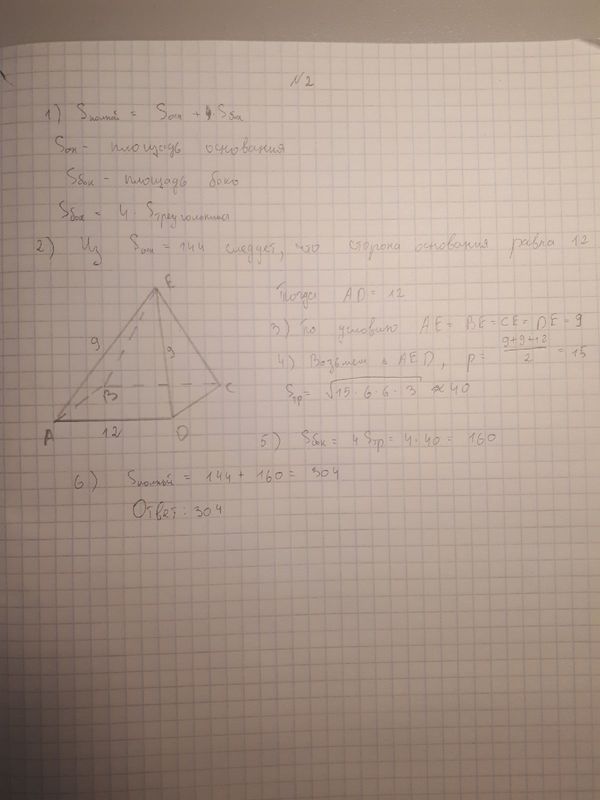 №2
1) Sполной = Sосн + Sбок
Sосн - площадь основания
Sбок - площадь боко
Sбок = 4 · Sтреугольника
2) Из Sосн = 144 следует, что сторона основания равна 12
Тогда AD = 12
3) По условию AE = BE = CE = DE = 9
4) Возьмем △ AED, p = (9+9+12)/2 = 15
Sтр = √15·6·6·3 ≈ 40
5) Sбок = 4Sтр = 4·40 = 160
6) Sполной = 144 + 160 = 304
Ответ: 304
E
9
9
B
C
A
12
D